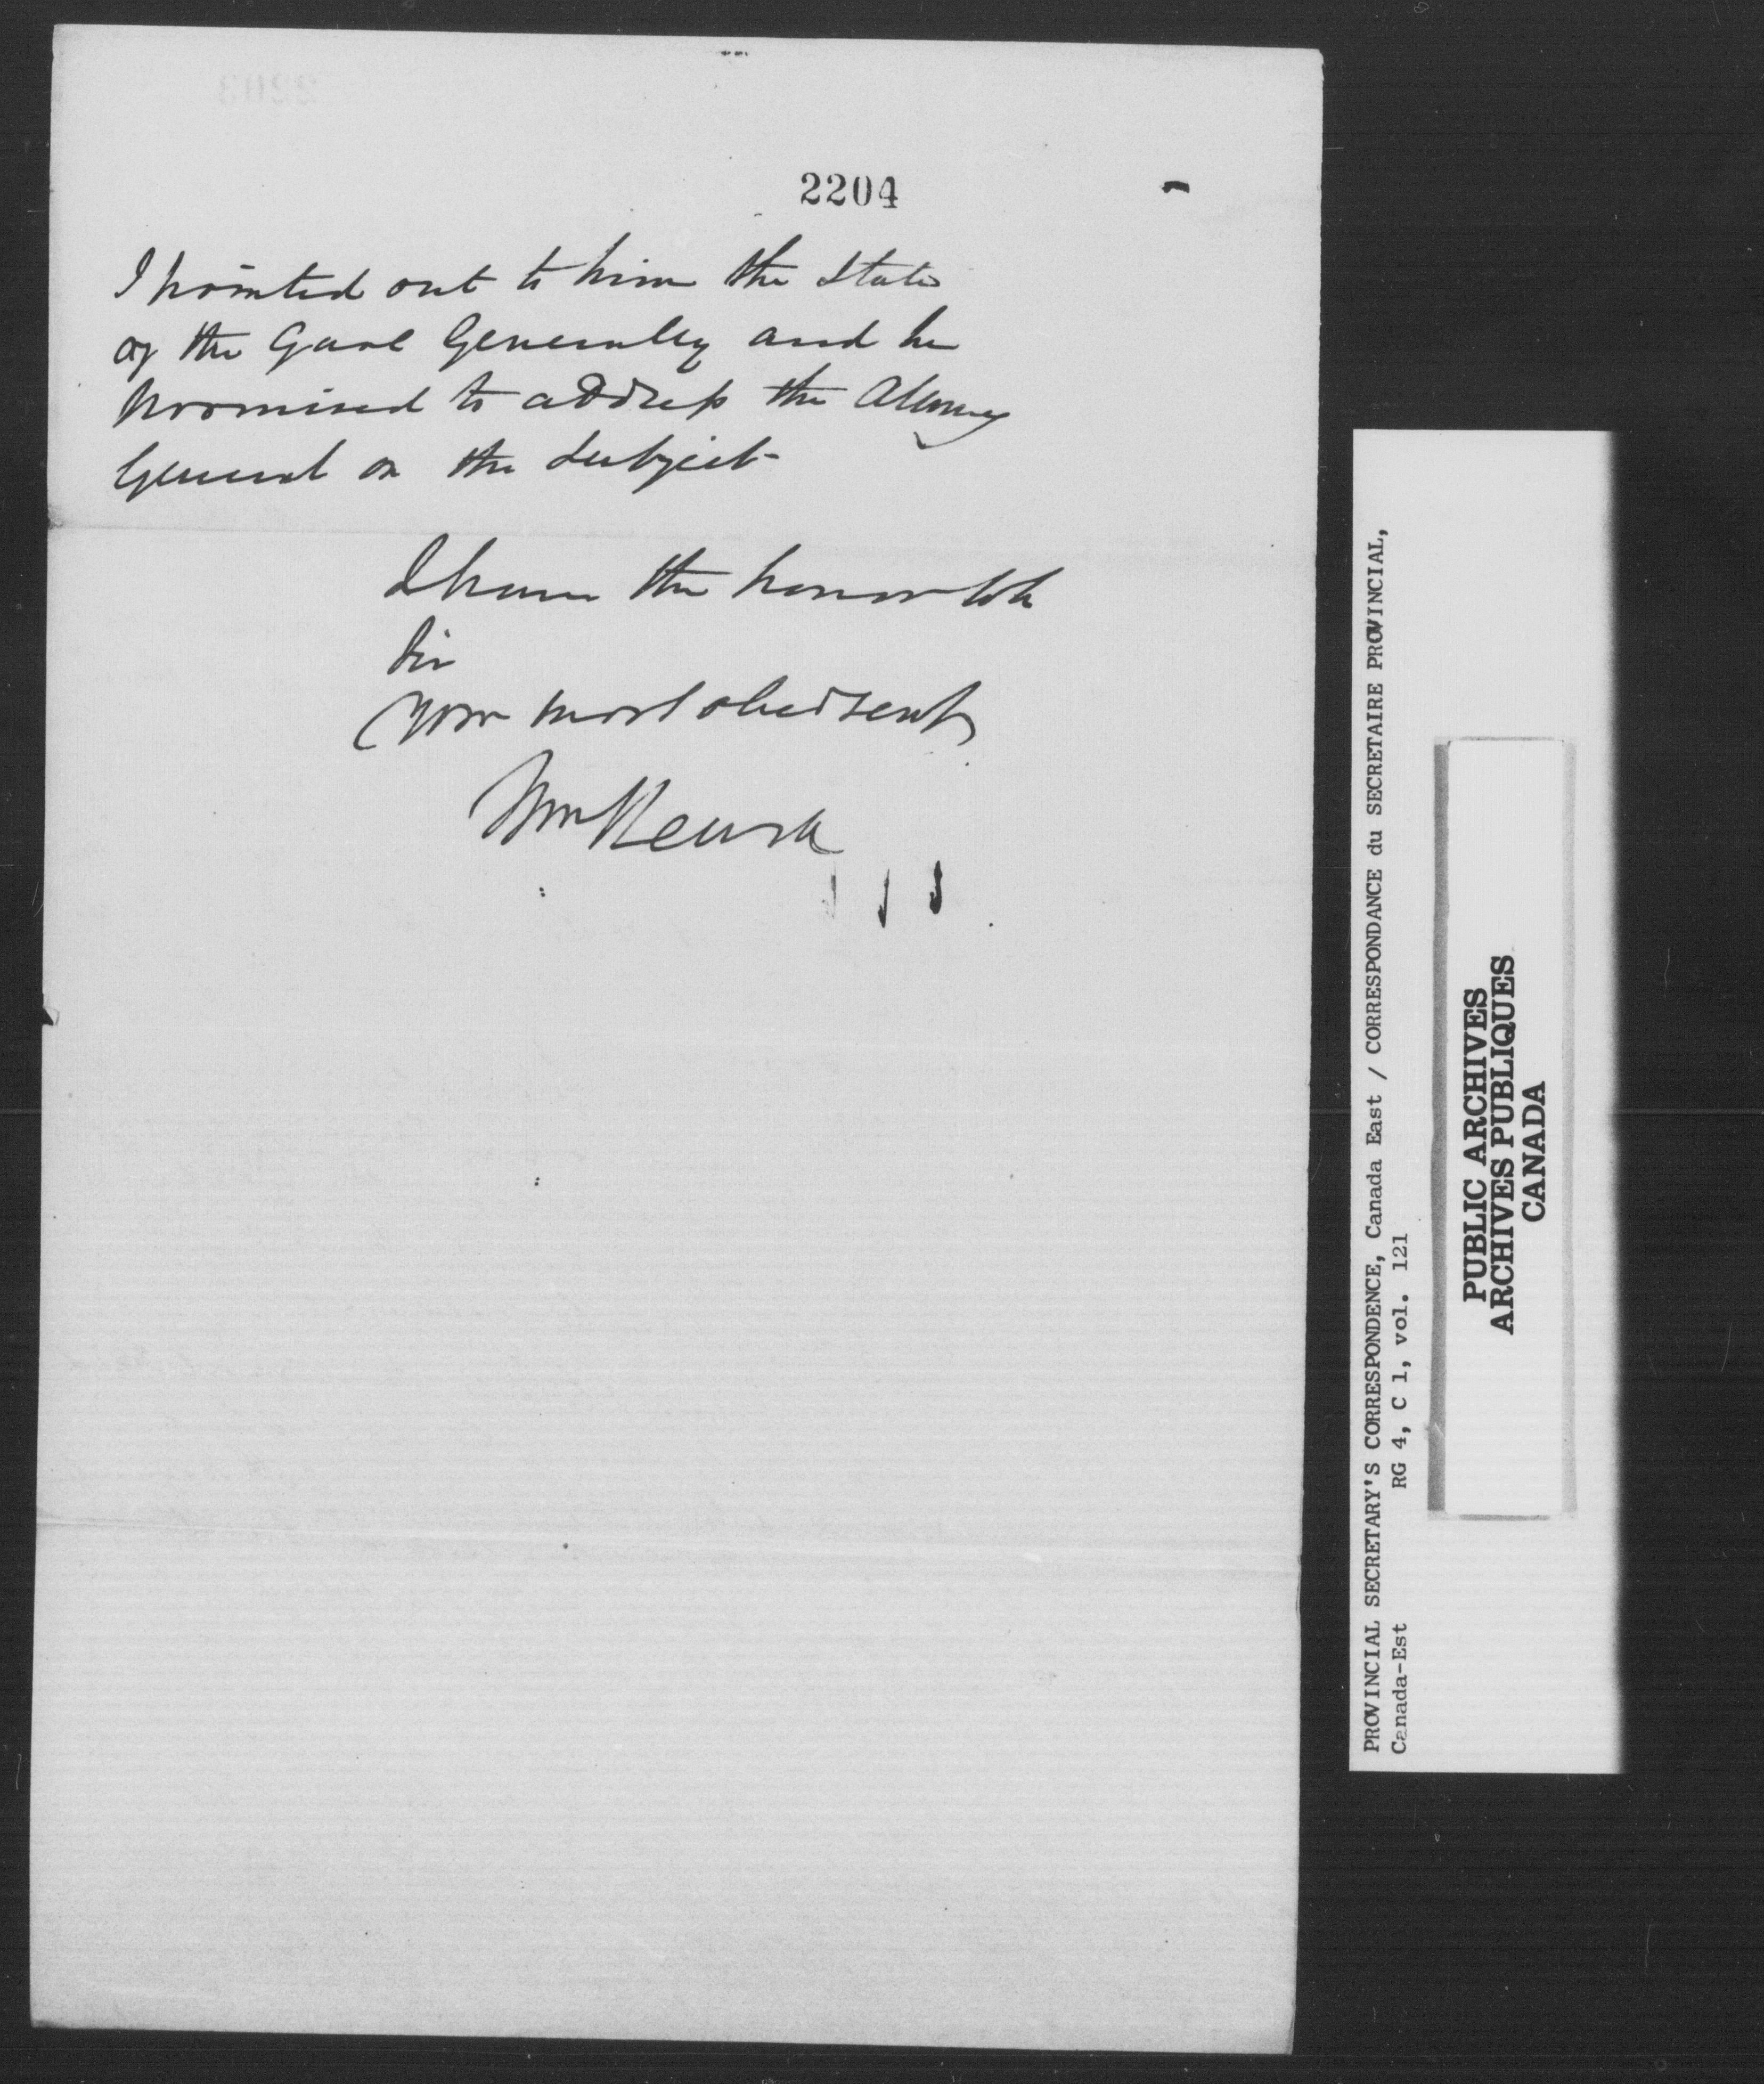 2204
I pointed out to him the State
of the Gaol Generally and he
promised to address the Attorney
General on the Subject-
I have the honor to be
Sir
Your most obedient
PROVINCIAL SECRETARY'S CORRESPONDENCE, Canada East / CORRESPONDANCE du SECRETAIRE PROVINCIAL,
Canada-Est RG 4, C 1, vol. 121
PUBLIC ARCHIVES
ARCHIVES PUBLIQUES
CANADA